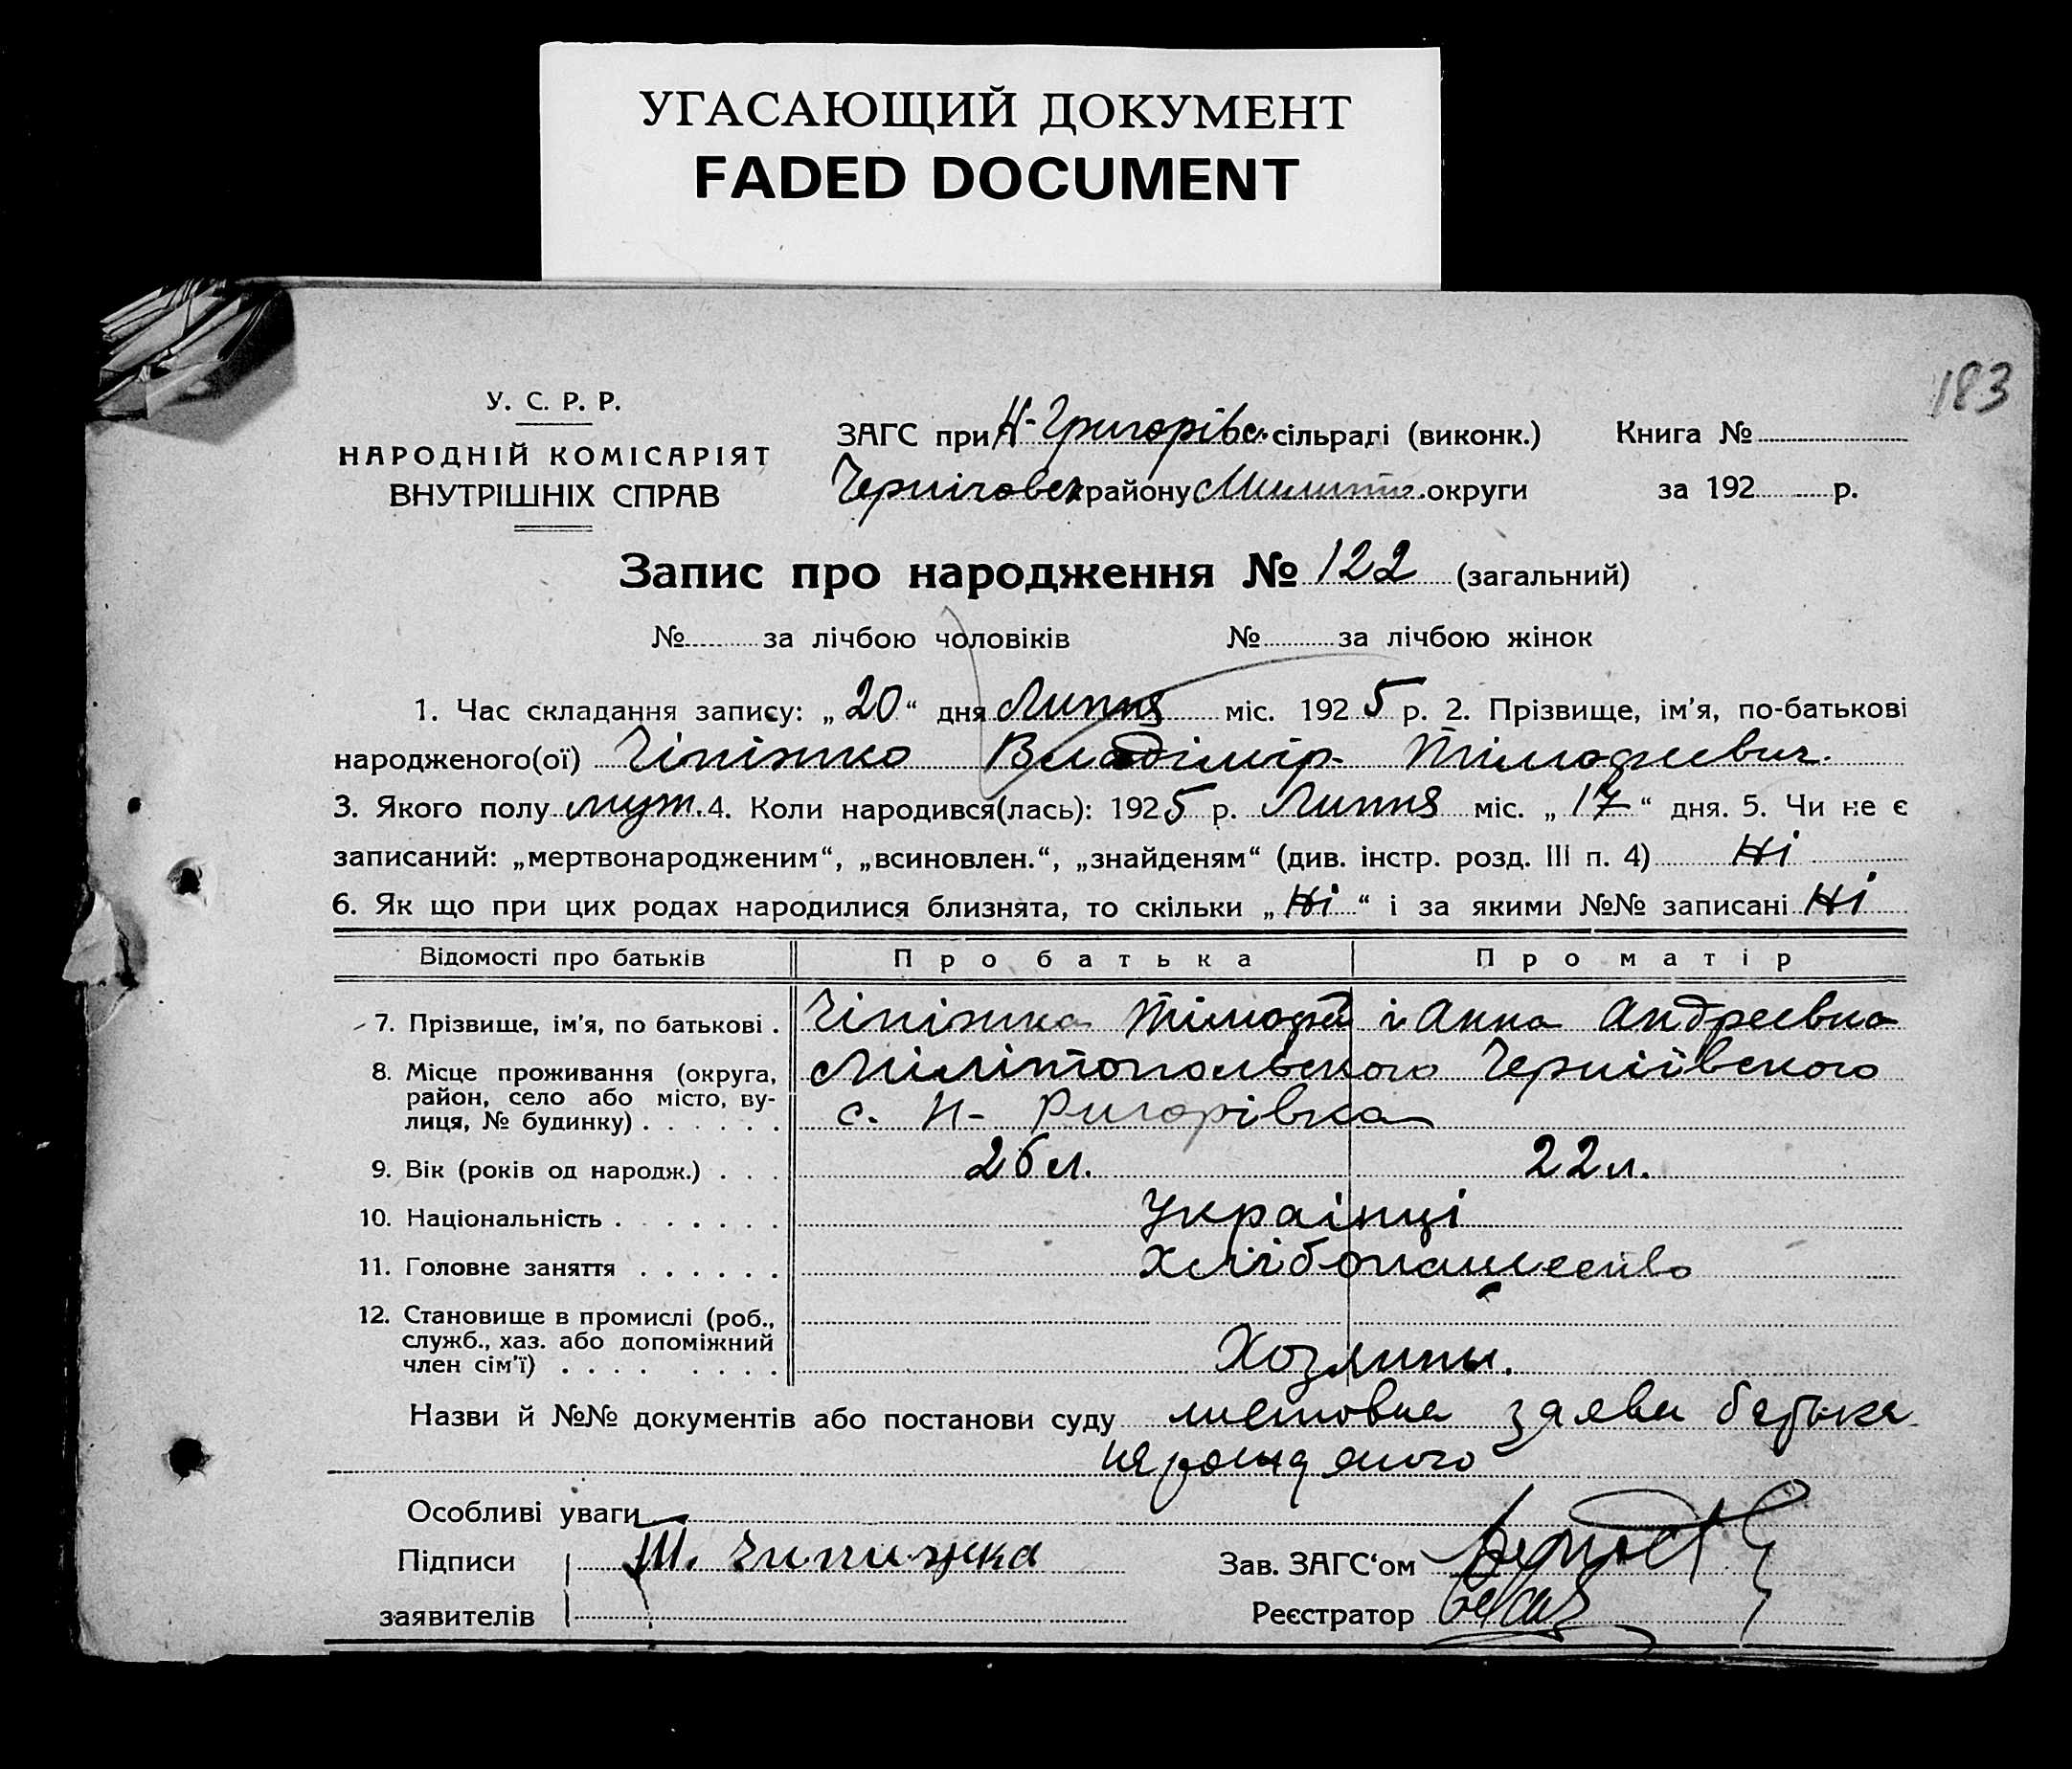 УГАСАЮЩИЙ ДОКУМЕНТ
FADED DOCUMENT
183
У. С. Р. Р.
НАРОДНІЙ КОМІСАРІЯТ
ВНУТРІШНІХ СПРАВ
ЗАГС при Н-Григорівс. сільраді (виконк.)
Черніговск району Миліто. округи
Книга №
за 192 р.
Запис про народження № 122 (загальний)
№ за лічбою чоловіків № за лічбою жінок
1. Час складання запису: „20“ дня Липня міс. 1925 р. 2. Прізвище, ім'я, по-батькові
народженого(ої) Чіпіжко Владімір Тімофеевич.
3. Якого полу муж. 4. Коли народився(лась): 1925 р. Липня міс. „17“ дня. 5. Чи не є
записаний: „мертвонародженим“, „всиновлен.“, „знайденям“ (див. інстр. розд. III п. 4) Ні
6. Як що при цих родах народилися близнята, то скільки „Ні“ і за якими №№ записані Ні
Відомості про батьків Про батька Про матір
7. Прізвище, ім'я, по батькові . Чіпіжка Тімофей і Анна Андреевна
8. Місце проживання (округа, район, село або місто, вулиця, № будинку) . . . . . . Мілітопольского Чернігівского
с. Н- Ригорівка
9. Вік (років од народж.) . . . 26 л. 22 л.
10. Національність . . . . . . . Українці
11. Головне заняття . . . . . . Хлібопашество
12. Становище в промислі (роб., служб., хаз. або допоміжний член сім'ї) . . . . . . . . Хозяины.
Назви й №№ документів або постанови суду листовна заява батька
народженого
Особливі уваги
Підписи Т. Чипижка
заявителів
Зав. ЗАГС'ом
Реєстратор